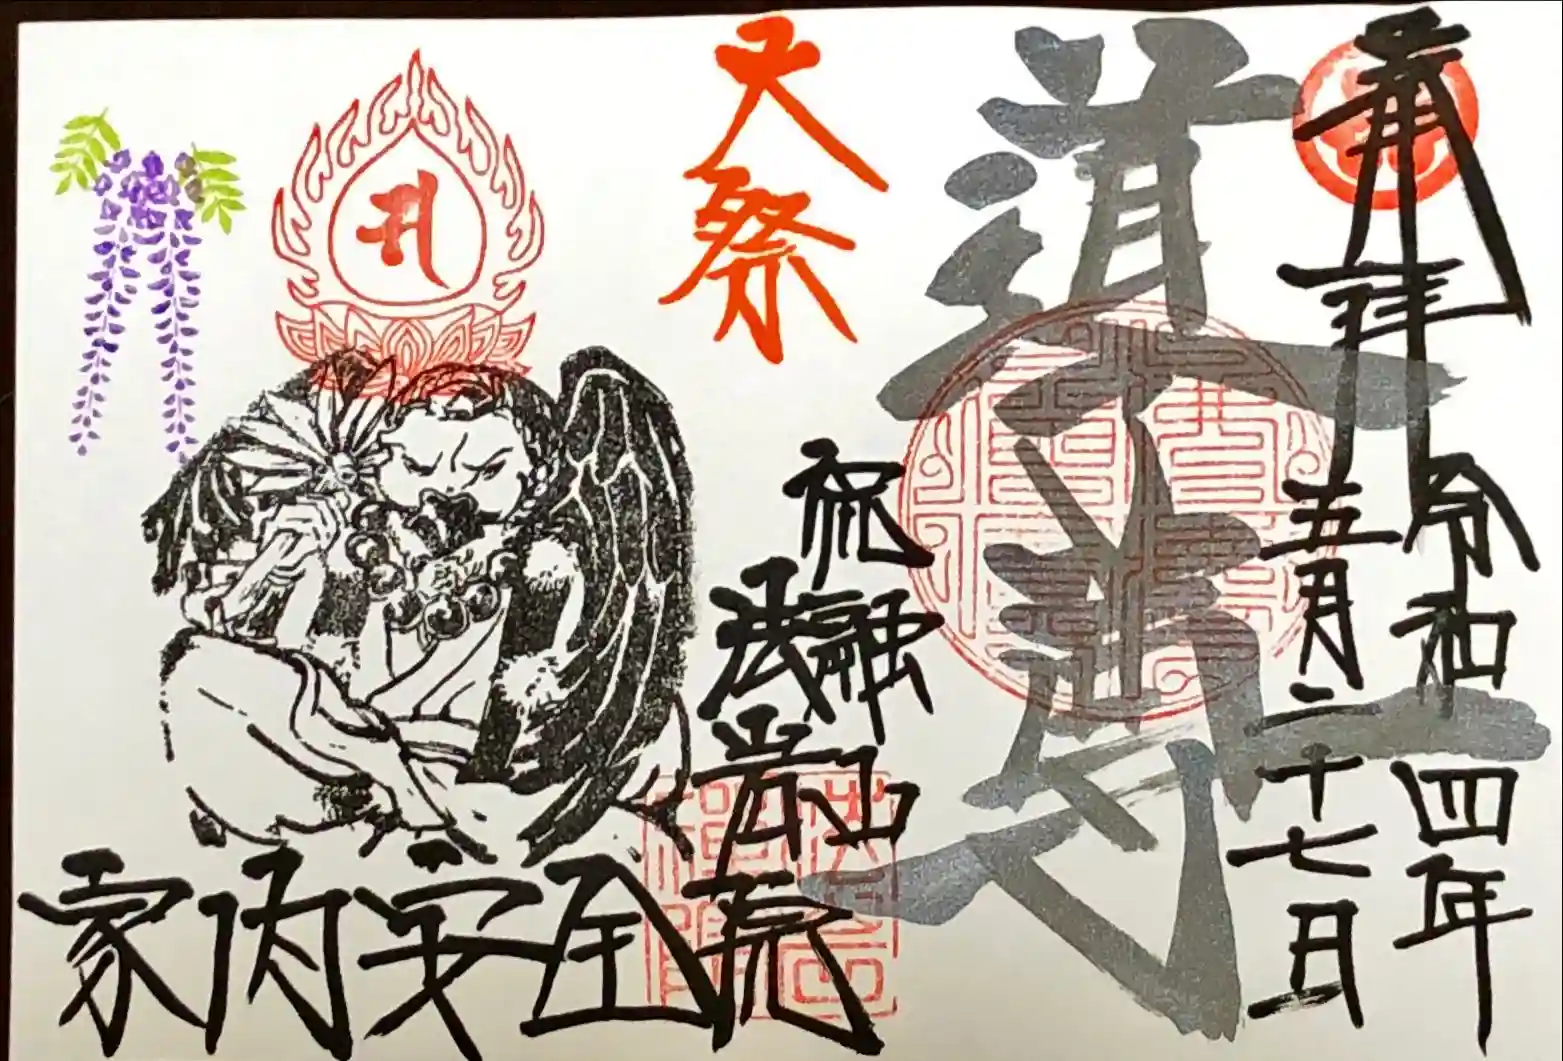 奉拝
令和四年
五月二十七日
道了尊
大祭
祝融山
法岩院
家内安全